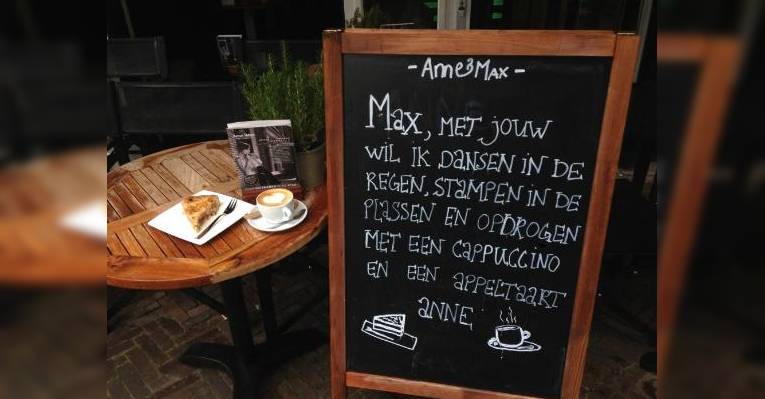 - Anne&Max -
Max, MET JOUW
WIL IK DANSEN IN DE
REGEN, STAMPEN IN DE
PLASSEN EN OPDROGEN
MET EEN CAPPUCCINO
EN EEN APPELTAART
ANNE